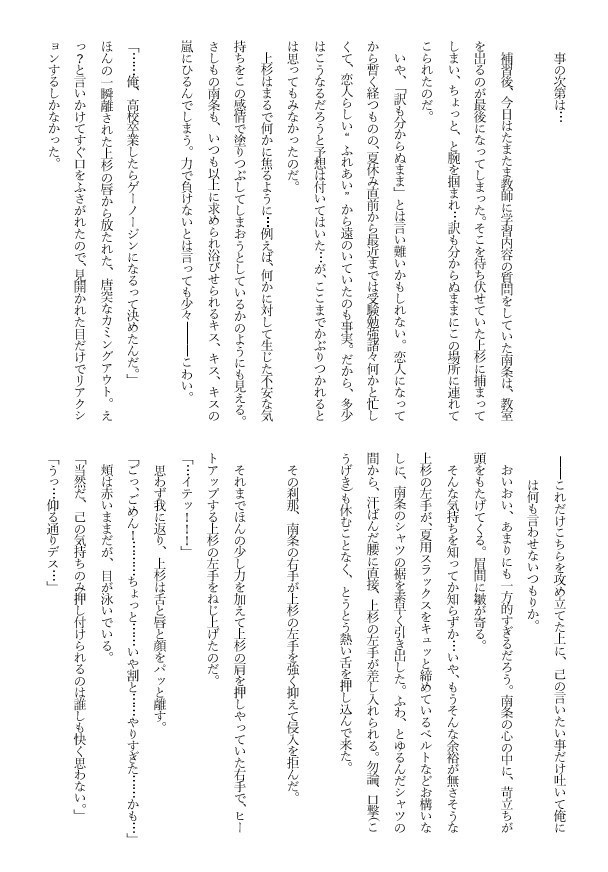 事の次第は…
補習後、今日はたまたま教師に学習内容の質問をしていた南条は、教室
を出るのが最後になってしまった。そこを待ち伏せていた上杉に捕まって
しまい、ちょっと、と腕を掴まれ…訳も分からぬままにこの場所に連れて
こられたのだ。
いや、「訳も分からぬまま」とは言い難いかもしれない。恋人になって
から暫く経つものの、夏休み直前から最近までは受験勉強諸々何かと忙し
くて、恋人らしい〝ふれあい〟から遠のいていたのも事実。だから、多少
はこうなるだろうと予想は付いてはいた…が、ここまでかぶりつかれると
は思ってもみなかったのだ。
上杉はまるで何かに焦るように…例えば、何かに対して生じた不安な気
持ちをこの感情で塗りつぶしてしまおうとしているかのようにも見える。
さしもの南条も、いつも以上に求められ浴びせられるキス、キス、キスの
嵐にひるんでしまう。力で負けないとは言っても少々――こわい。
「……俺、高校卒業したらゲーノージンになるって決めたんだ。」
ほんの一瞬離された上杉の唇から放たれた、唐突なカミングアウト。え
っ?と言いかけてすぐ口をふさがれたので、見開かれた目だけでリアクシ
ョンするしかなかった。
――これだけこちらを攻め立てた上に、己の言いたい事だけ吐いて俺に
は何も言わせないつもりか。
おいおい、あまりにも一方的すぎるだろう。南条の心の中に、苛立ちが
頭をもたげてくる。眉間に皺が寄る。
そんな気持ちを知ってか知らずか…いや、もうそんな余裕が無さそうな
上杉の左手が、夏用スラックスをキュッと締めているベルトなどお構いな
しに、南条のシャツの裾を素早く引き出した。ふわ、とゆるんだシャツの
間から、汗ばんだ腰に直接、上杉の左手が差し入れられる。勿論、口撃(こ
うげき)も休むことなく、とうとう熱い舌を押し込んで来た。
その刹那、南条の右手が上杉の左手を強く抑えて侵入を拒んだ。
それまでほんの少し力を加えて上杉の肩を押しやっていた右手で、ヒー
トアップする上杉の左手をねじ上げたのだ。
「…イテッ!!!」
思わず我に返り、上杉は舌と唇と顔をパッと離す。
「ごっ、ごめん!………ちょっと……いや割と……やりすぎた……かも…」
頬は赤いままだが、目が泳いでいる。
「当然だ、己の気持ちのみ押し付けられるのは誰しも快く思わない。」
「うっ…仰る通りデス…」